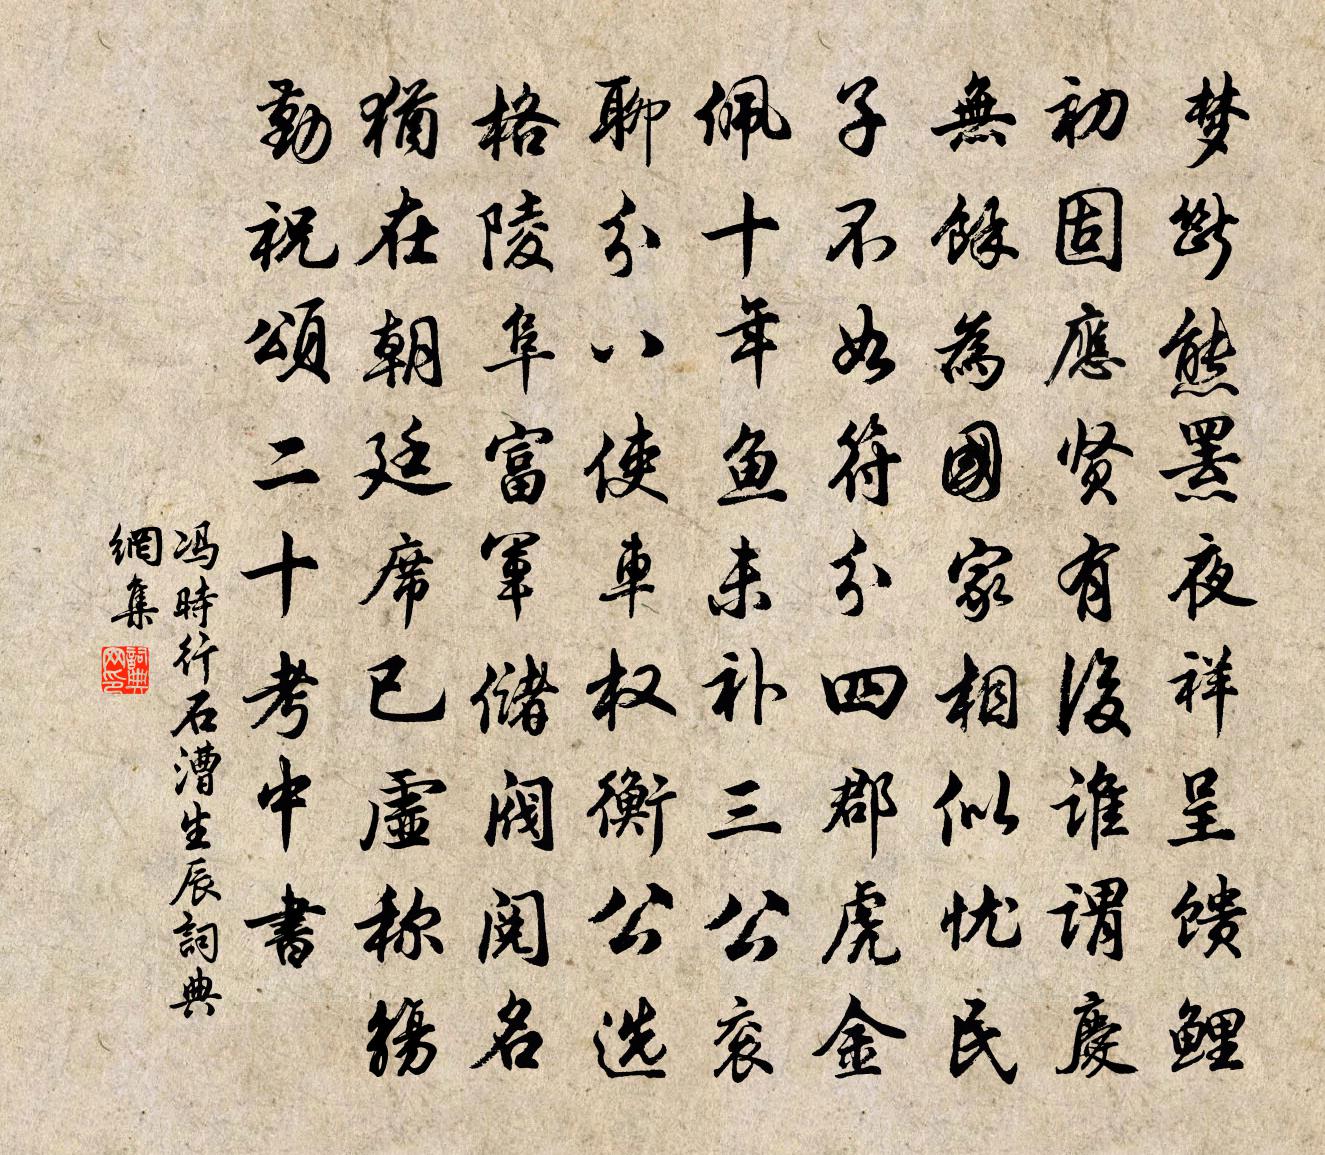 梦断熊罴夜祥呈馈鲤
初固應贤有後谁謂慶
無餘為國家相似忧民
子不如符分四郡虎金
佩十年鱼未补三公衮
聊分八使車权衡公选
格陵阜富軍储阀阅名
猶在朝廷席已虚称觞
勤祝頌二十考中書
冯時行石漕生辰詞典
網集
詞典
网印